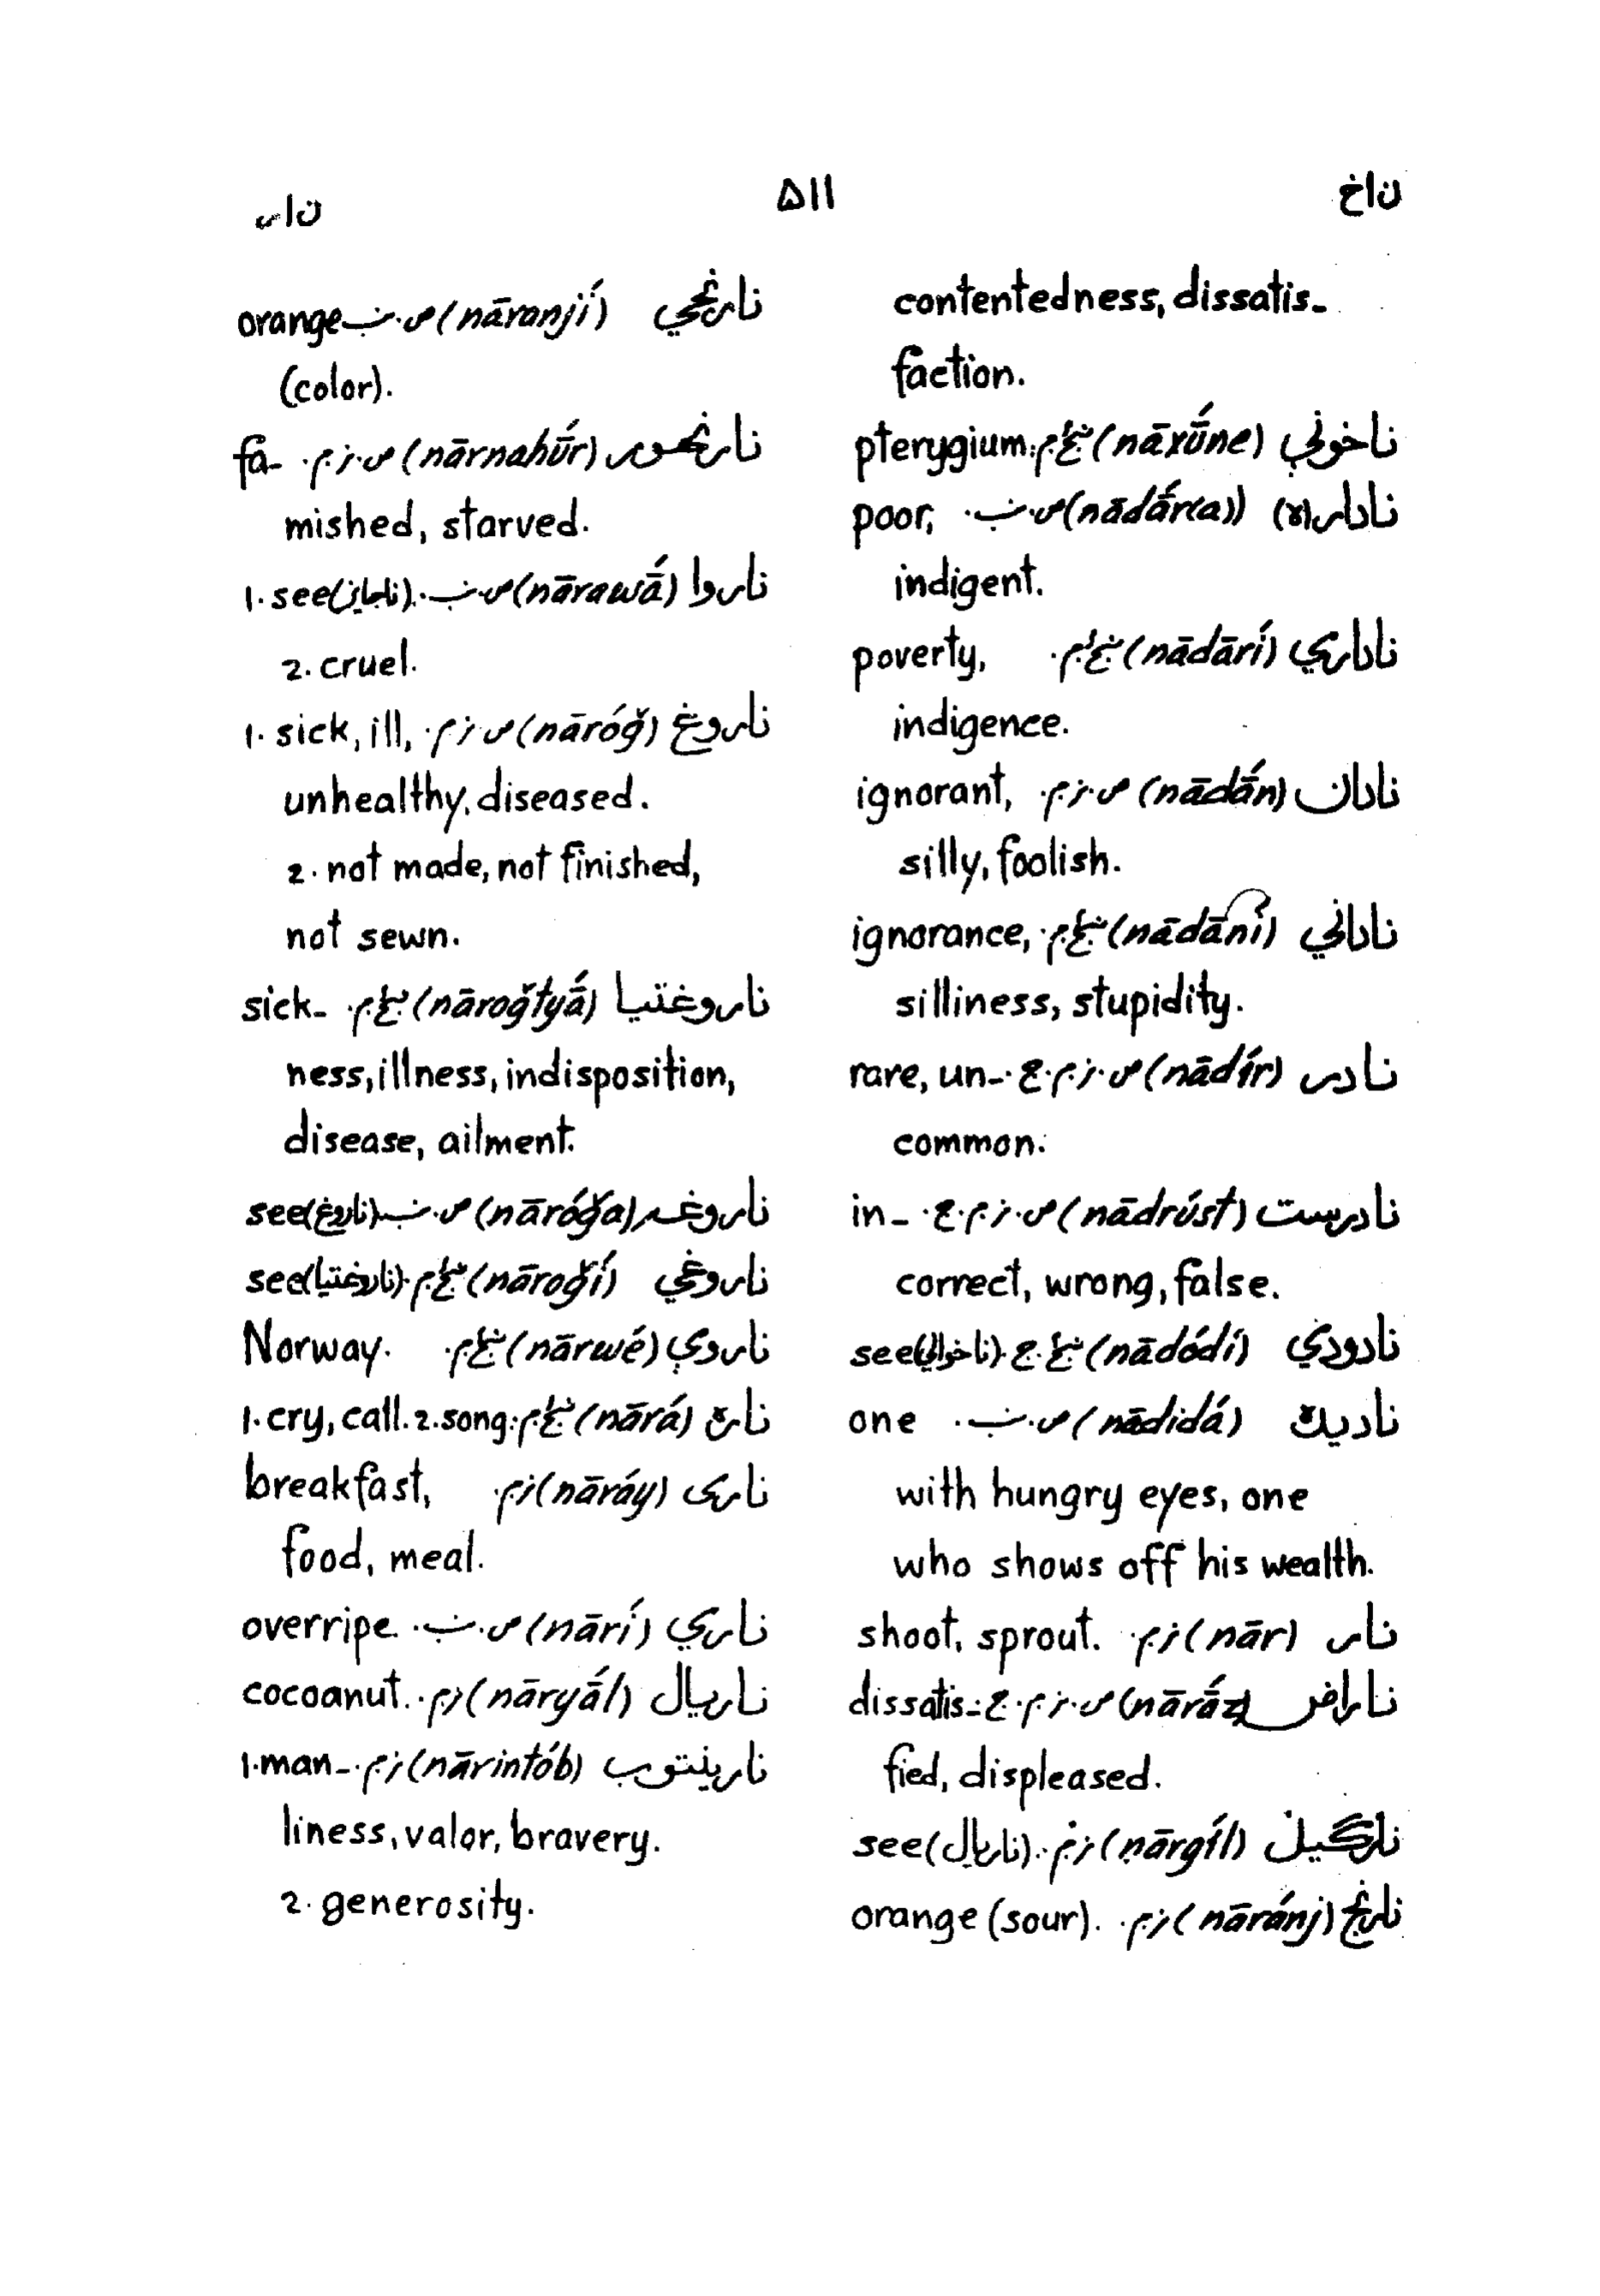 ناخ
۵۱۱
نار
contentedness, dissatis-
faction.
ناخونې (nāxū́ne) pterygium.
نادار(ه) (nādā́r(a)) ص.ن. poor,
indigent.
ناداري (nādārí) poverty,
indigence.
نادان (nādā́n) ص.ز.م. ignorant,
silly, foolish.
ناداني (nādāní) ignorance,
silliness, stupidity.
نادر (nādír) ص.ز.م.ج. rare, un-
common.
نادرست (nādrúst) ص.ز.م.ج. in-
correct, wrong, false.
نادودې (nādódí) see(ناخوالې).
ناديده (nādidá) ص.ن. one
with hungry eyes, one
who shows off his wealth.
نار (nār) ز.م. shoot, sprout.
ناراض (nārā́z) ص.ز.م.ج. dissatis-
fied, displeased.
نارګيل (nārgíl) ز.م. see(ناريال).
نارنج (nāránj) ز.م. orange (sour).
نارنجي (nāranjí) ص.ن. orange
(color).
نارنهور (nārnahū́r) ص.ز.م. fa-
mished, starved.
ناروا (nārawā́) ص.ن. 1. see(ناجايز).
2. cruel.
ناروغ (nāróğ) ص.ز.م. 1. sick, ill,
unhealthy, diseased.
2. not made, not finished,
not sewn.
ناروغتيا (nāroğtyā́) sick-
ness, illness, indisposition,
disease, ailment.
ناروغه (nāróğa) ص.ن. see(ناروغ)
ناروغي (nāroğí) see(ناروغتيا).
ناروې (nārwé) Norway.
ناره (nārá) 1. cry, call. 2. song.
نارى (nāráy) ز.م. breakfast,
food, meal.
ناري (nārí) ص.ن. overripe.
ناريال (nāryā́l) ز.م. cocoanut.
نارينتوب (nārintób) ز.م. 1. man-
liness, valor, bravery.
2. generosity.